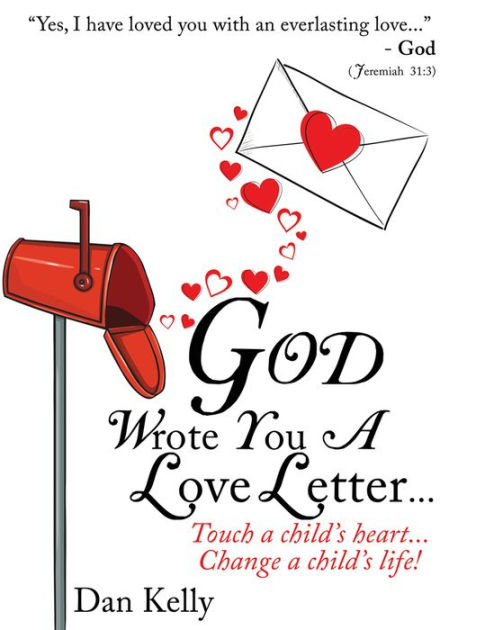 “Yes, I have loved you with an everlasting love...”
- God
(Jeremiah 31:3)
God
Wrote You A
Love Letter...
Touch a child’s heart...
Change a child’s life!
Dan Kelly